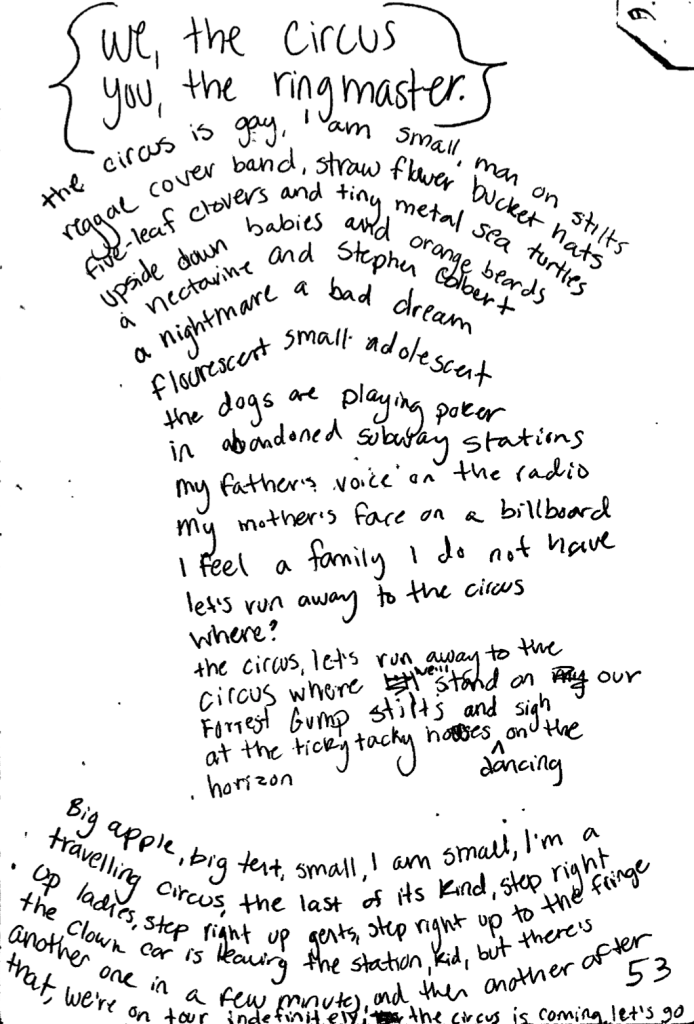 we, the circus
you, the ringmaster.
the circus is gay, I am small, man on stilts
reggae cover band, straw flower bucket hats
five-leaf clovers and tiny metal sea turtles
upside down babies and orange beards
a nectarine and Stephen Colbert
a nightmare a bad dream
flourescent small adolescent
the dogs are playing poker
in abandoned subway stations
my father's voice on the radio
my mother's face on a billboard
I feel a family I do not have
let's run away to the circus
where?
the circus, let's run away to the
circus where we'll stand on my our
Forrest Gump stilts and sigh
at the ticky tacky houses dancing on the
horizon
Big apple, big tent, small, I am small, I'm a
travelling circus, the last of its kind, step right
up ladies, step right up gents, step right up to the fringe
the clown car is leaving the station, kid, but there's
another one in a few minutes, and then another after
that, we're on tour indefinitely, the circus is coming, let's go
53